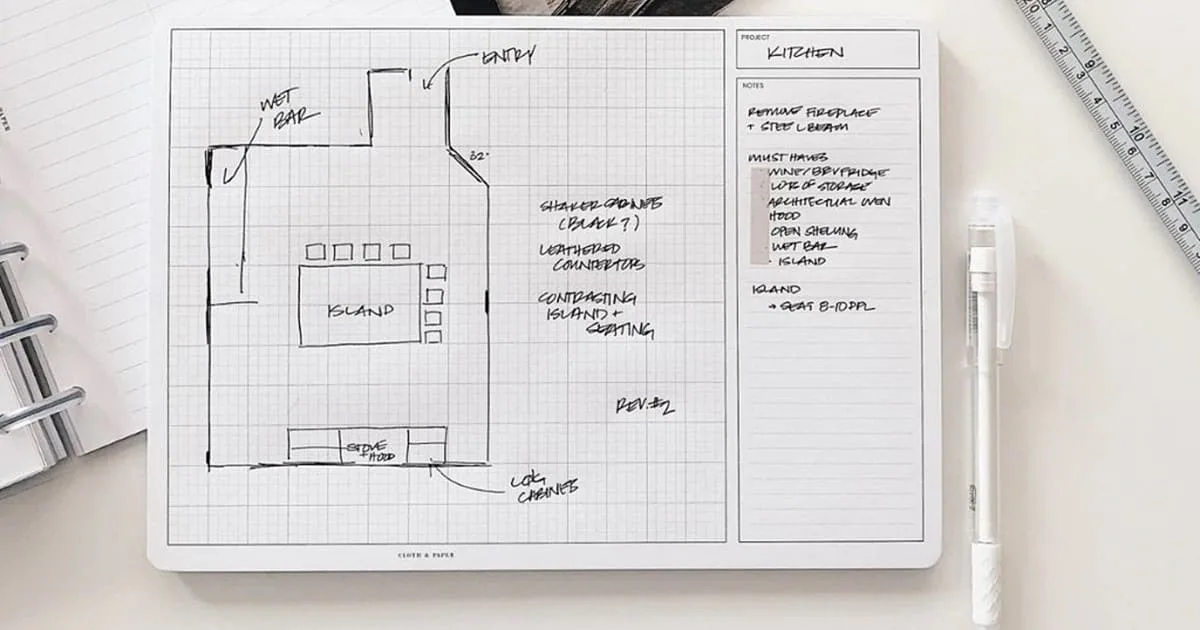 ENTRY
WET
BAR
32"
SHAKER CABINETS
(BLACK?)
LEATHERED
COUNTERTOPS
CONTRASTING
ISLAND +
SEATING
ISLAND
REV. #2
STOVE
+ HOOD
CABINETS
CLOTH & PAPER
PROJECT
KITCHEN
NOTES
REMOVE FIREPLACE
+ STEEL BEAM
MUST HAVES
WINE/BEV FRIDGE
LOTS OF STORAGE
ARCHITECTURAL OVEN
HOOD
OPEN SHELVING
WET BAR
ISLAND
ISLAND
→ SEAT 8-10 PPL
PAPER
9
10
11
2
3
4
5
6
7
8
9